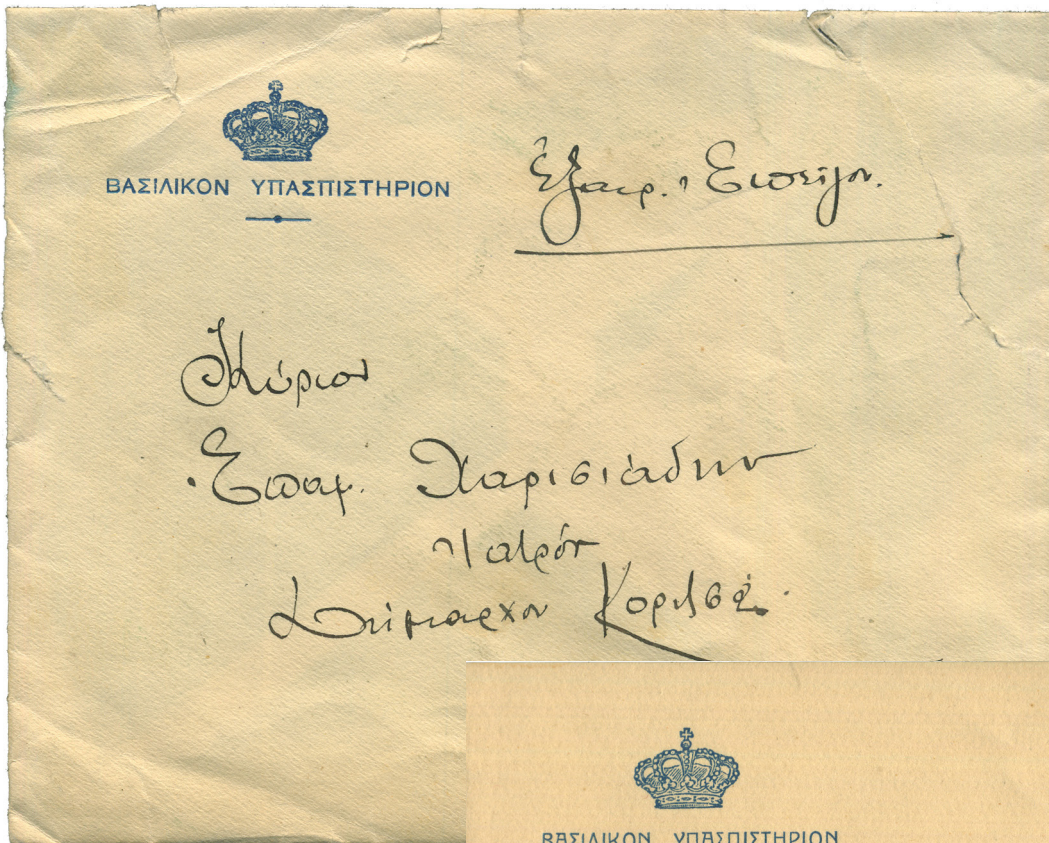 ΒΑΣΙΛΙΚΟΝ ΥΠΑΣΠΙΣΤΗΡΙΟΝ
Ἐξαιρ. Ἐπεῖγον.
Κύριον
Ἐπαμ. Χαρισιάδην
Ἰατρόν
Δήμαρχον Κοριτσᾶς
ΒΑΣΙΛΙΚΟΝ ΥΠΑΣΠΙΣΤΗΡΙΟΝ